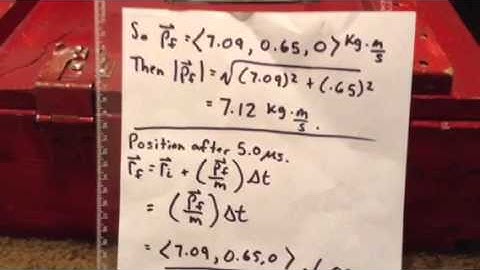 So p⃗f = <7.09, 0.65, 0> kg·m/s
Then |p⃗f| = √(7.09)² + (.65)²
= 7.12 kg·m/s.
Position after 5.0 μs.
r⃗f = r⃗i + (p⃗f/m) Δt
= (p⃗f/m) Δt
= <7.09, 0.65, 0>